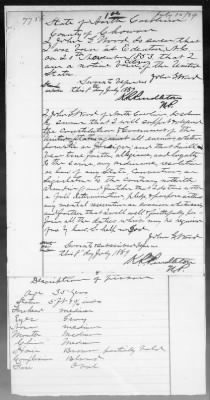 State of North Carolina
County of Chowan
I John G Wood do swear that
I was born at Edenton N.C.
on 21st November 1853, that I
am a Native Citizen of the United
States
Sworn to before me
John G Wood
this 1st day July 1889
N.P.
I John G Wood of North Carolina do solemnly
swear that I will support & defend
the Constitution & Government of the
United States against all enemies whether
domestic or foreign; and that I will
bear true faith, allegiance and loyalty
to the same, any ordinance, resolution
or law of any State Convention or
Legislature to the contrary notwith
standing; and further that I do this with
a full determination, pledge & purpose without
any mental reservation or evasion whatsoever
and further that I will well & faithfully per
form all the duties which may be required
of me by law. So help me God.
John G Wood
Sworn to and subscribed before me
this 1st day July 1889
N.P.
Description of Person
Age 35 years
Stature 5 ft
Forehead Medium
Eyes Grey
Nose medium
Mouth Medium
Chin Medium
Hair Brown partially bald
Complexion Blonde
Face Oval